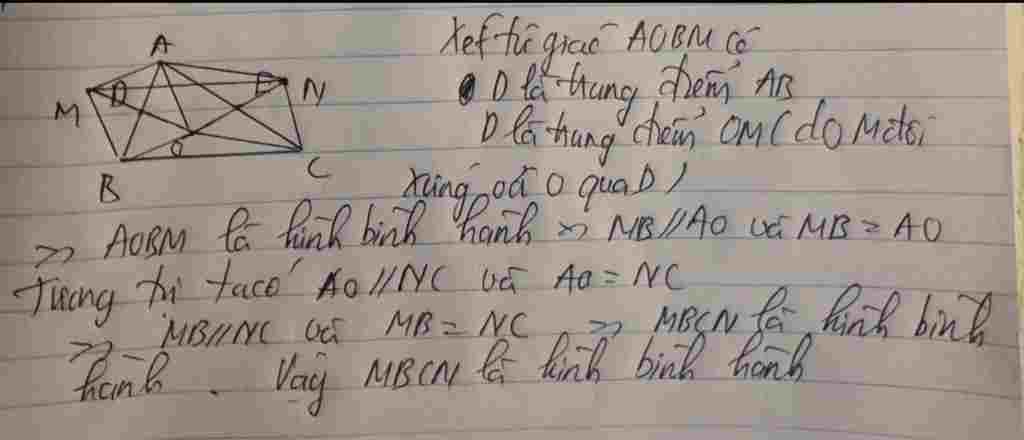 Xét tứ giác AOBM có
D là trung điểm AB
D là trung điểm OM (do M đối
xứng với O qua D)
=> AOBM là hình bình hành => MB//AO và MB = AO
Tương tự ta có AO//NC và AO = NC
=> MB//NC và MB = NC => MBCN là hình bình
hành . Vậy MBCN là hình bình hành
A
M
D
E
N
O
B
C